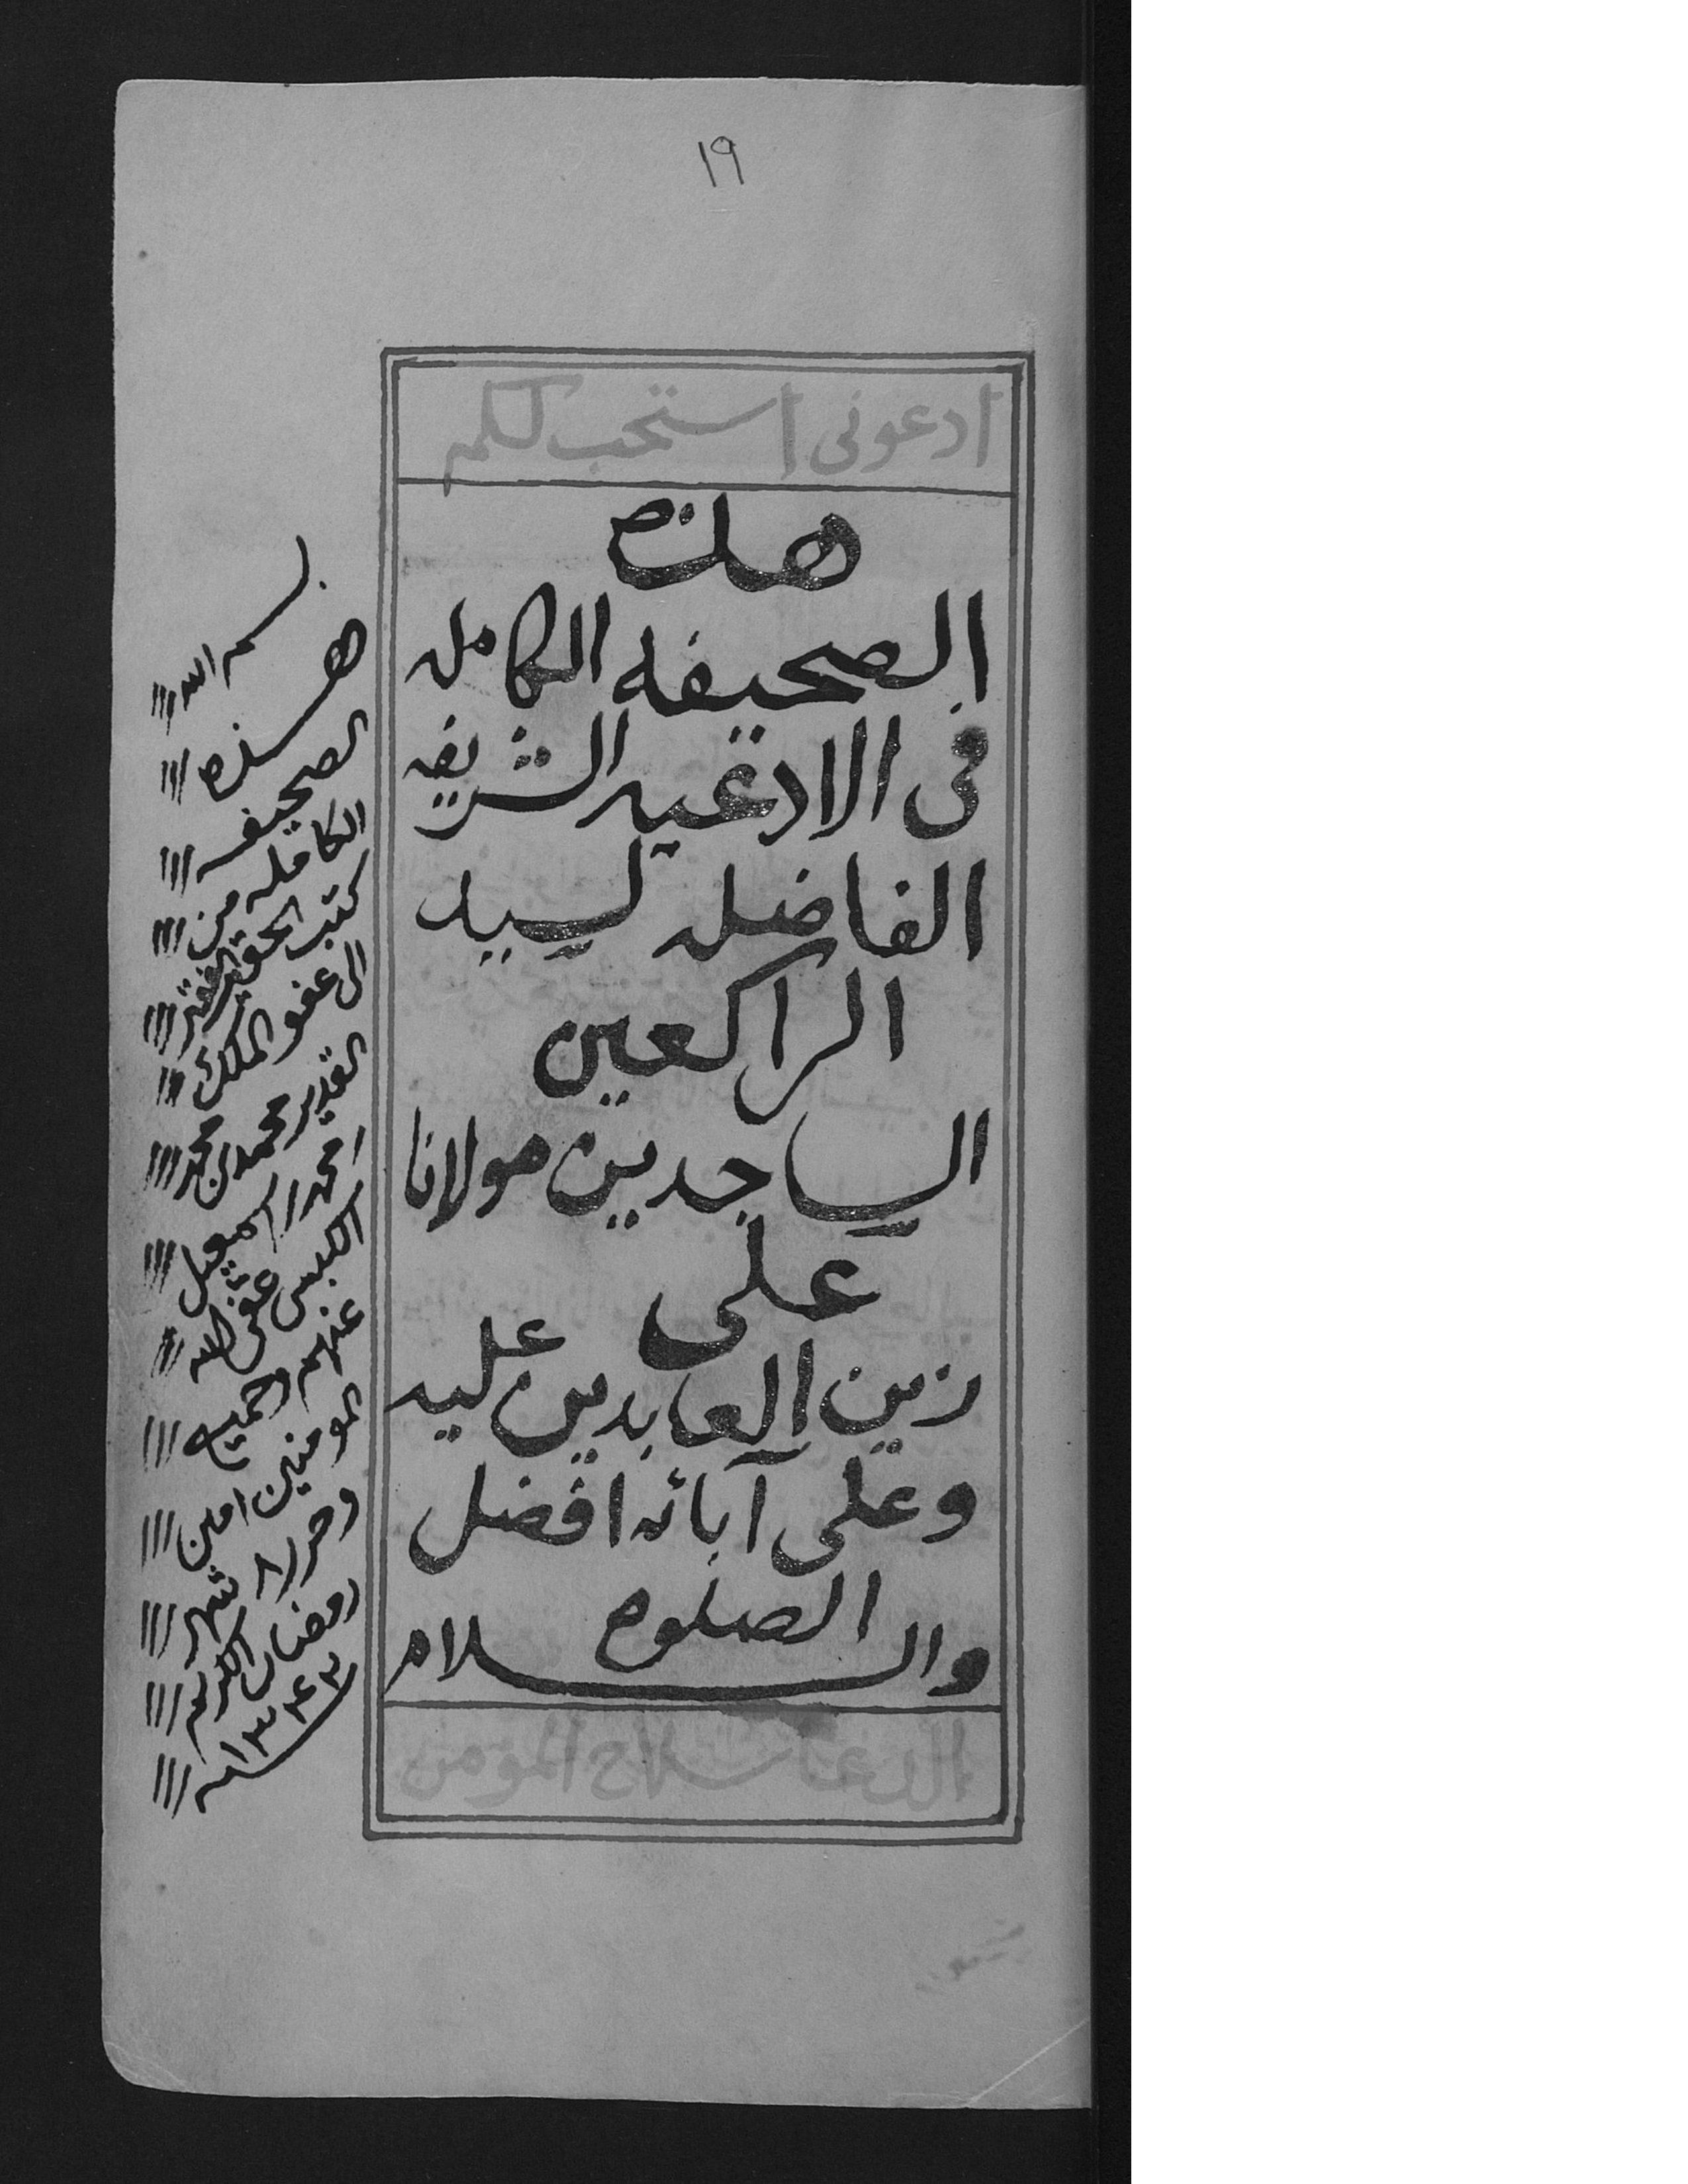 ١٩
ادعونى استجب لكم
هذه
الصحيفه الكامل
فى الادعيه الشريفه
الفاضله لسيد
الراكعين
الساجدين مولانا
على
زين العابدين عليه
وعلى آبائه افضل
الصلوة
والسلام
الدعا سلاح المومن
بسم الله
هذه
الصحيفه
الكامله من
كتب الحقير الفقير
الى عفو الملك
القدير محمد بن محمد
احمد اسمعيل
الكبسى غفر الله
عنهم وجميع
المومنين امين
وحرر ٨ شهر
رمضان الكريم
سنه ١٣٤٣